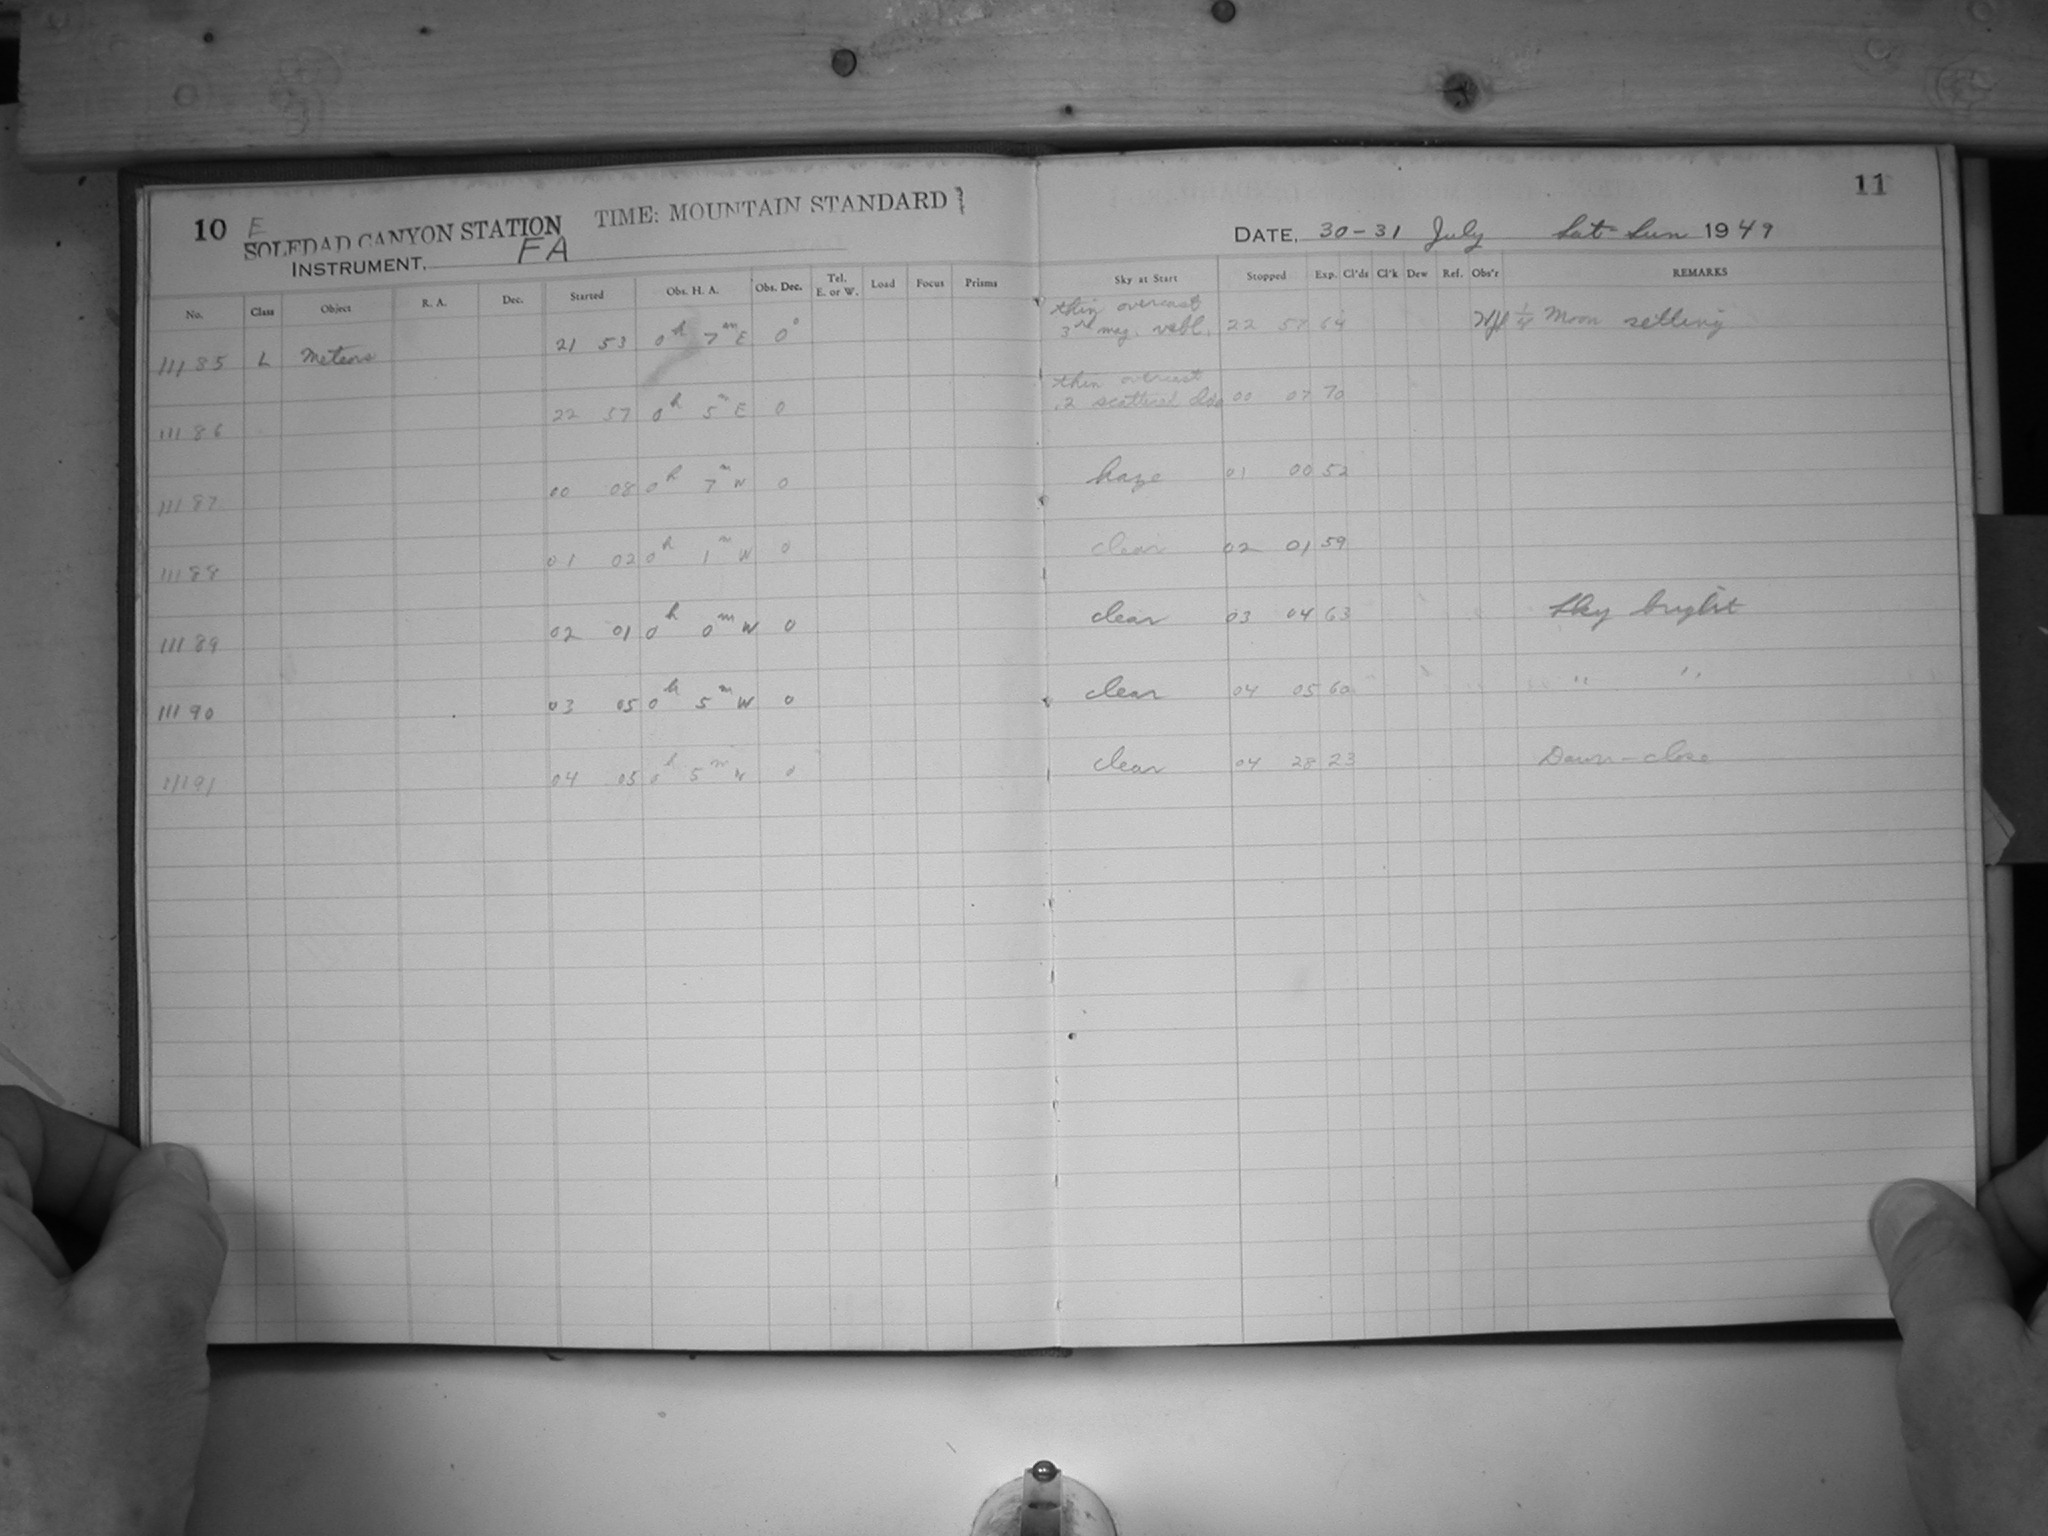 10 E
SOLEDAD CANYON STATION TIME: MOUNTAIN STANDARD
INSTRUMENT, FA
No. Class Object R. A. Dec. Started Obs. H. A. Obs. Dec. Tel. E. or W. Load Focus Prisms
11185 L Meteors 21 53 0h 7m E 0°
11186 22 57 0h 5m E 0
11187 00 08 0h 7m W 0
11188 01 02 0h 1m W 0
11189 02 01 0h 0m W 0
11190 03 05 0h 5m W 0
11191 04 05 0h 5m W 0
11
DATE, 30-31 July Sat-Sun 1949
Sky at Start Stopped Exp. Cl'ds Cl'k Dew Ref. Obs'r REMARKS
thin overcast
3rd mag. vsbl. 22 57 64 1/4 Moon setting
thin overcast
.2 scattered clds 00 07 70
haze 01 00 52
clear 02 01 59
clear 03 04 63 Sky bright
clear 04 05 60 " "
clear 04 28 23 Dawn-close